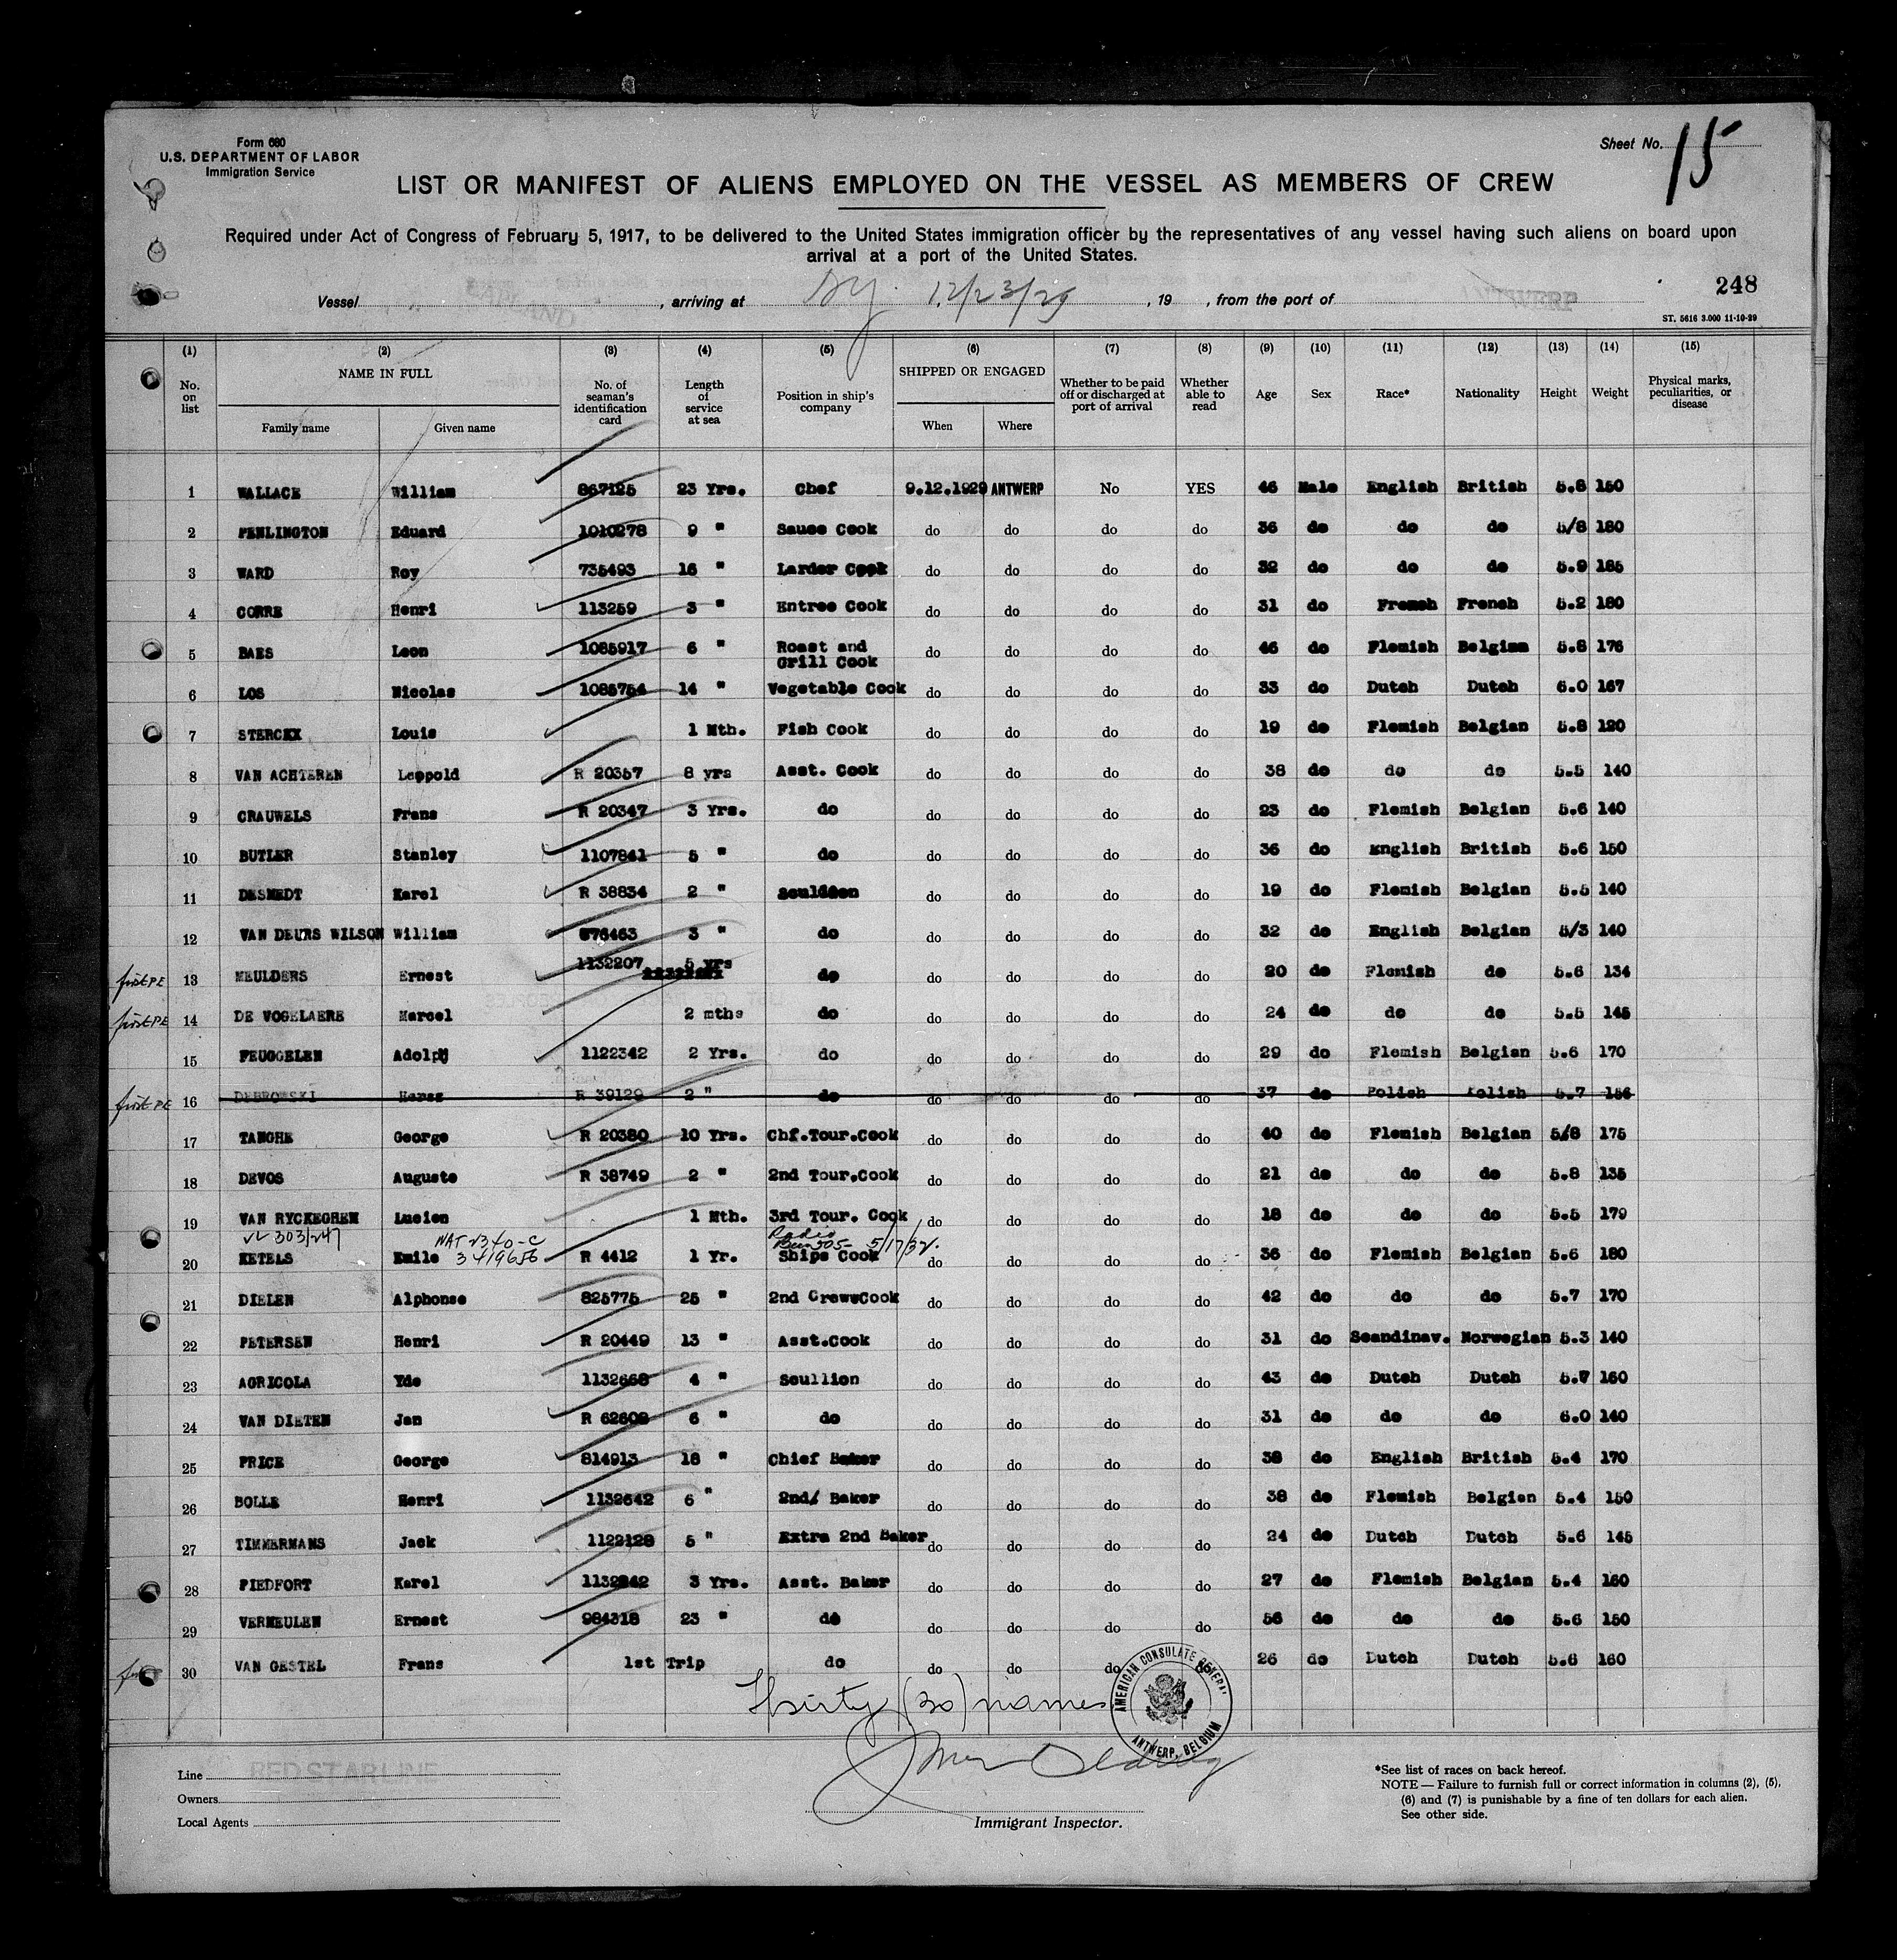 Form 680
U.S. DEPARTMENT OF LABOR
Immigration Service
Sheet No. 15
LIST OR MANIFEST OF ALIENS EMPLOYED ON THE VESSEL AS MEMBERS OF CREW
Required under Act of Congress of February 5, 1917, to be delivered to the United States immigration officer by the representatives of any vessel having such aliens on board upon
arrival at a port of the United States.
248
Vessel , arriving at 12/23/29 , 19 , from the port of ANTWERP
ST. 5616 3.000 11-10-29
(1) (2) (3) (4) (5) (6) (7) (8) (9) (10) (11) (12) (13) (14) (15)
No. on list NAME IN FULL Family name Given name No. of seaman's identification card Length of service at sea Position in ship's company SHIPPED OR ENGAGED When Where Whether to be paid off or discharged at port of arrival Whether able to read Age Sex Race* Nationality Height Weight Physical marks, peculiarities, or disease
1 WALLACE William 867125 23 Yrs. Chef 9.12.1929 ANTWERP No YES 46 Male English British 5.8 150
2 PENLINGTON Eduard 1010278 9 " Sauce Cook do do do do 36 do do do 5/8 180
3 WARD Roy 735493 16 " Larder Cook do do do do 32 do do do 5.9 185
4 CORRE Henri 113259 3 " Entree Cook do do do do 31 do French French 5.2 180
5 BAES Leon 1085917 6 " Roast and Grill Cook do do do do 46 do Flemish Belgian 5.8 176
6 LOS Nicolas 1085754 14 " Vegetable Cook do do do do 33 do Dutch Dutch 6.0 167
7 STERCKX Louis 1 Mth. Fish Cook do do do do 19 do Flemish Belgian 5.8 120
8 VAN ACHTEREN Leopold R 20357 8 yrs Asst. Cook do do do do 38 do do do 5.5 140
9 CRAUWELS Frans R 20347 3 Yrs. do do do do do 23 do Flemish Belgian 5.6 140
10 BUTLER Stanley 1107841 5 " do do do do do 36 do English British 5.6 150
11 DESMEDT Karel R 38834 2 " do do do do 19 do Flemish Belgian 5.5 140
12 VAN DEURS WILSON William 676463 3 " do do do do do 32 do English Belgian 5/3 140
first PE 13 MEULDERS Ernest 1132207 5 yrs do do do do do 20 do Flemish do 5.6 134
first PE 14 DE VOGELAERE Marcel 2 mths do do do do do 24 do do do 5.5 145
15 FEUGGELEN Adolph 1122342 2 Yrs. do do do do do 29 do Flemish Belgian 5.6 170
first PE 16 DEBROWSKI R 39129 2 " do do do do do 37 do Polish Polish 5.7 156
17 TANGHE George R 20380 10 Yrs. Chf.Tour.Cook do do do do 40 do Flemish Belgian 5/8 175
18 DEVOS Auguste R 38749 2 " 2nd Tour.Cook do do do do 21 do do do 5.8 135
19 VAN RYCKEGHEM Lucien 1 Mth. 3rd Tour. Cook do do do do 18 do do do 5.5 179
303/247 NAT-2340-C Radio 505- 5/17/32.
20 KETELS Emile 3419656 R 4412 1 Yr. Ships Cook do do do do 36 do Flemish Belgian 5.6 180
21 DIELEN Alphonse 825775 25 " 2nd CrewsCook do do do do 42 do do do 5.7 170
22 PETERSEN Henri R 20449 13 " Asst.Cook do do do do 31 do Scandinav. Norwegian 5.3 140
23 AGRICOLA Yde 1132668 4 " Scullion do do do do 43 do Dutch Dutch 5.7 160
24 VAN DIETEN Jan R 62609 6 " do do do do do 31 do do do 6.0 140
25 PRICE George 814913 18 " Chief Baker do do do do 38 do English British 5.4 170
26 BOLLE Henri 1132642 6 " 2nd/ Baker do do do do 38 do Flemish Belgian 5.4 150
27 TIMMERMANS Jack 1122128 5 " Extra 2nd Baker do do do do 24 do Dutch Dutch 5.6 145
28 PIEDFORT Karel 1132242 3 Yrs. Asst. Baker do do do do 27 do Flemish Belgian 5.4 160
29 VERMEULEN Ernest 984318 23 " do do do do do 56 do do do 5.6 150
30 VAN GESTEL Frans 1st Trip do do do do do 26 do Dutch Dutch 5.6 160
Thirty (30) names
AMERICAN CONSULATE GENERAL
ANTWERP, BELGIUM
Line RED STAR LINE
Owners
Local Agents
Immigrant Inspector.
*See list of races on back hereof.
NOTE — Failure to furnish full or correct information in columns (2), (5),
(6) and (7) is punishable by a fine of ten dollars for each alien.
See other side.